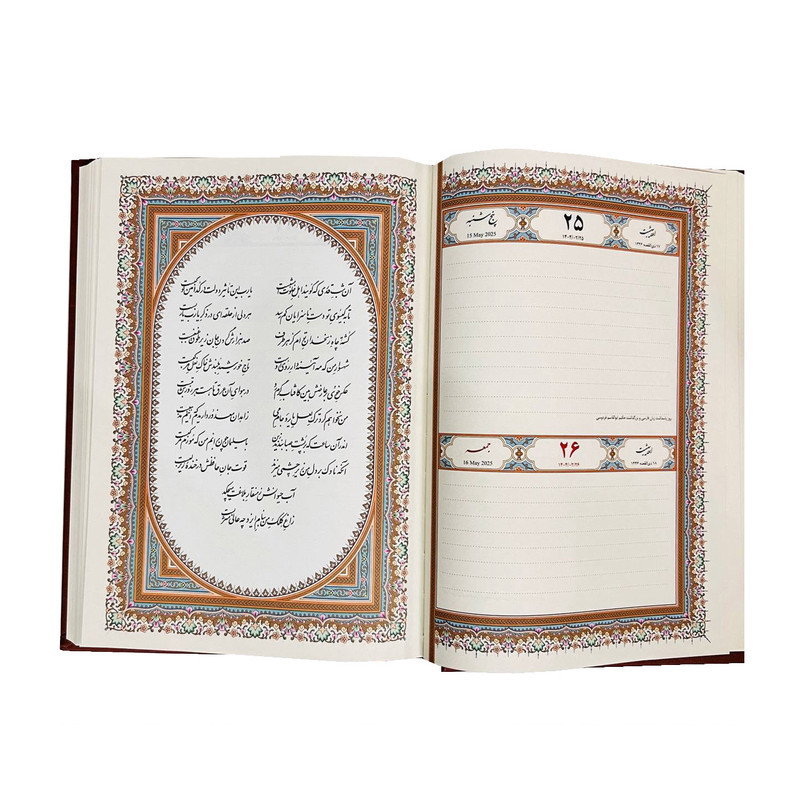 آن شب قدری که گویند اهل خلوت امشب است یارب این تاثیر دولت در کدامین کوکب است
تا به گیسوی تو دست ناسزایان کم رسد هر دلی از حلقه‌ای در ذکر یارب یارب است
کشته چاه زنخدان توام کز هر طرف صد هزارش گردن جان زیر طوق غبغب است
شهسوار من که مه آیینه دار روی اوست تاج خورشید بلندش خاک نعل مرکب است
عکس خوی بر عارضش بین کافتاب گرم رو در هوای آن عرق تا هست هر روزش تب است
من نخواهم کرد ترک لعل یار و جام می زاهدان معذور داریدم که اینم مذهب است
اندر آن ساعت که بر پشت صبا بندند زین با سلیمان چون برانم من که مورم مرکب است
آنکه ناوک بر دل من زیر چشمی میزند قوت جان حافظش در خنده زیر لب است
آب حیوانش ز منقار بلاغت میچکد
زاغ کلک من بنام ایزد چه عالی مشرب است
اردیبهشت ۲۵ پنج شنبه
۱۴۰۴/۰۲/۲۵ 15 May 2025
روز پاسداشت زبان فارسی و بزرگداشت حکیم ابوالقاسم فردوسی
اردیبهشت ۲۶ جمعه
۱۴۰۴/۰۲/۲۶ 16 May 2025